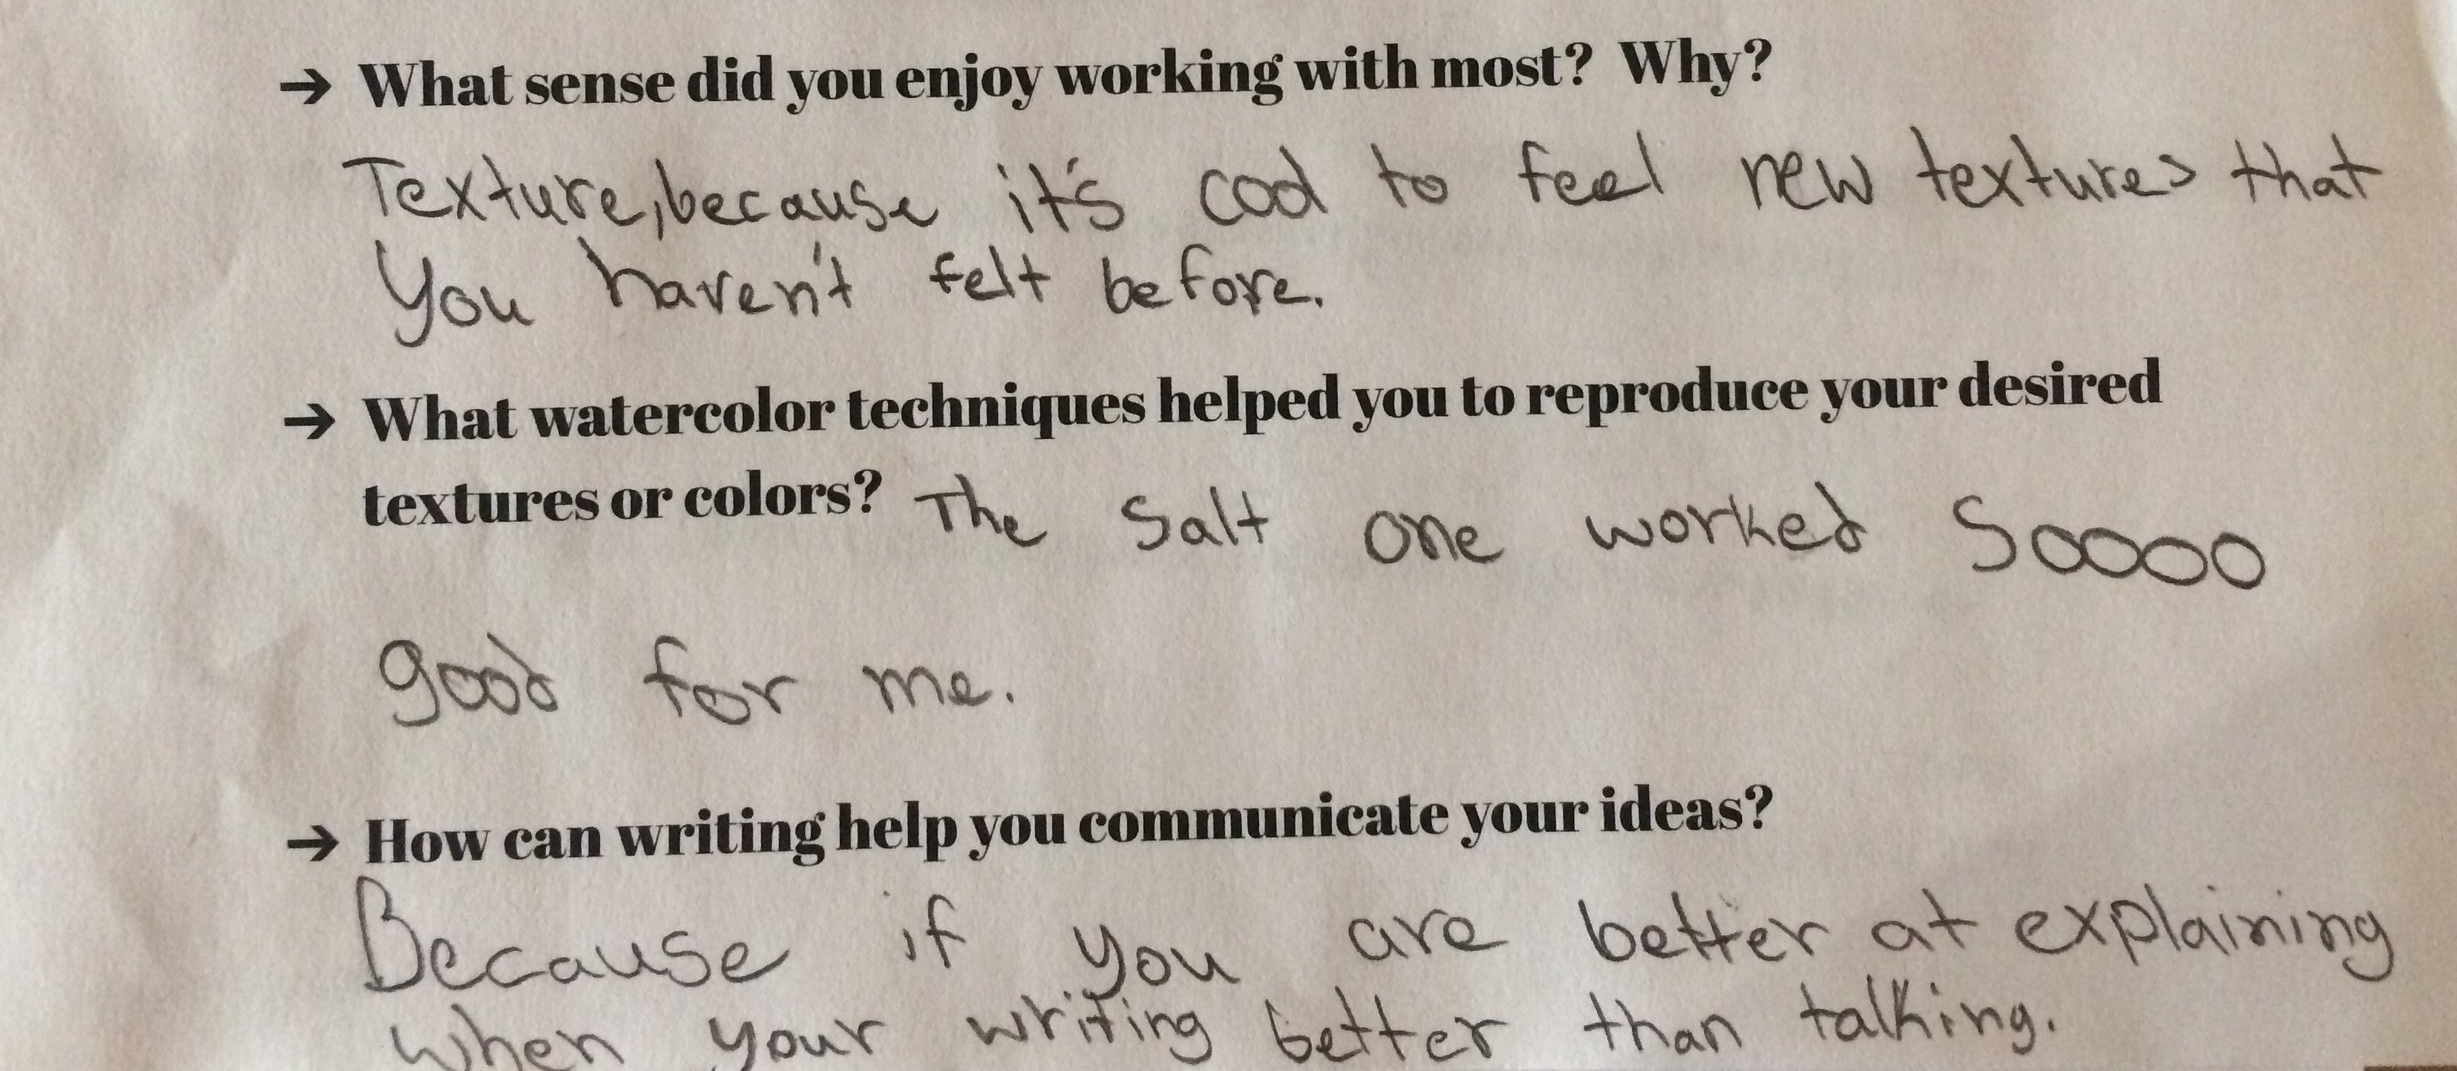 → What sense did you enjoy working with most? Why?
Texture, because it's cool to feel new textures that
you haven't felt before.
→ What watercolor techniques helped you to reproduce your desired
textures or colors? The salt one worked Soooo
good for me.
→ How can writing help you communicate your ideas?
Because if you are better at explaining
when your writing better than talking.